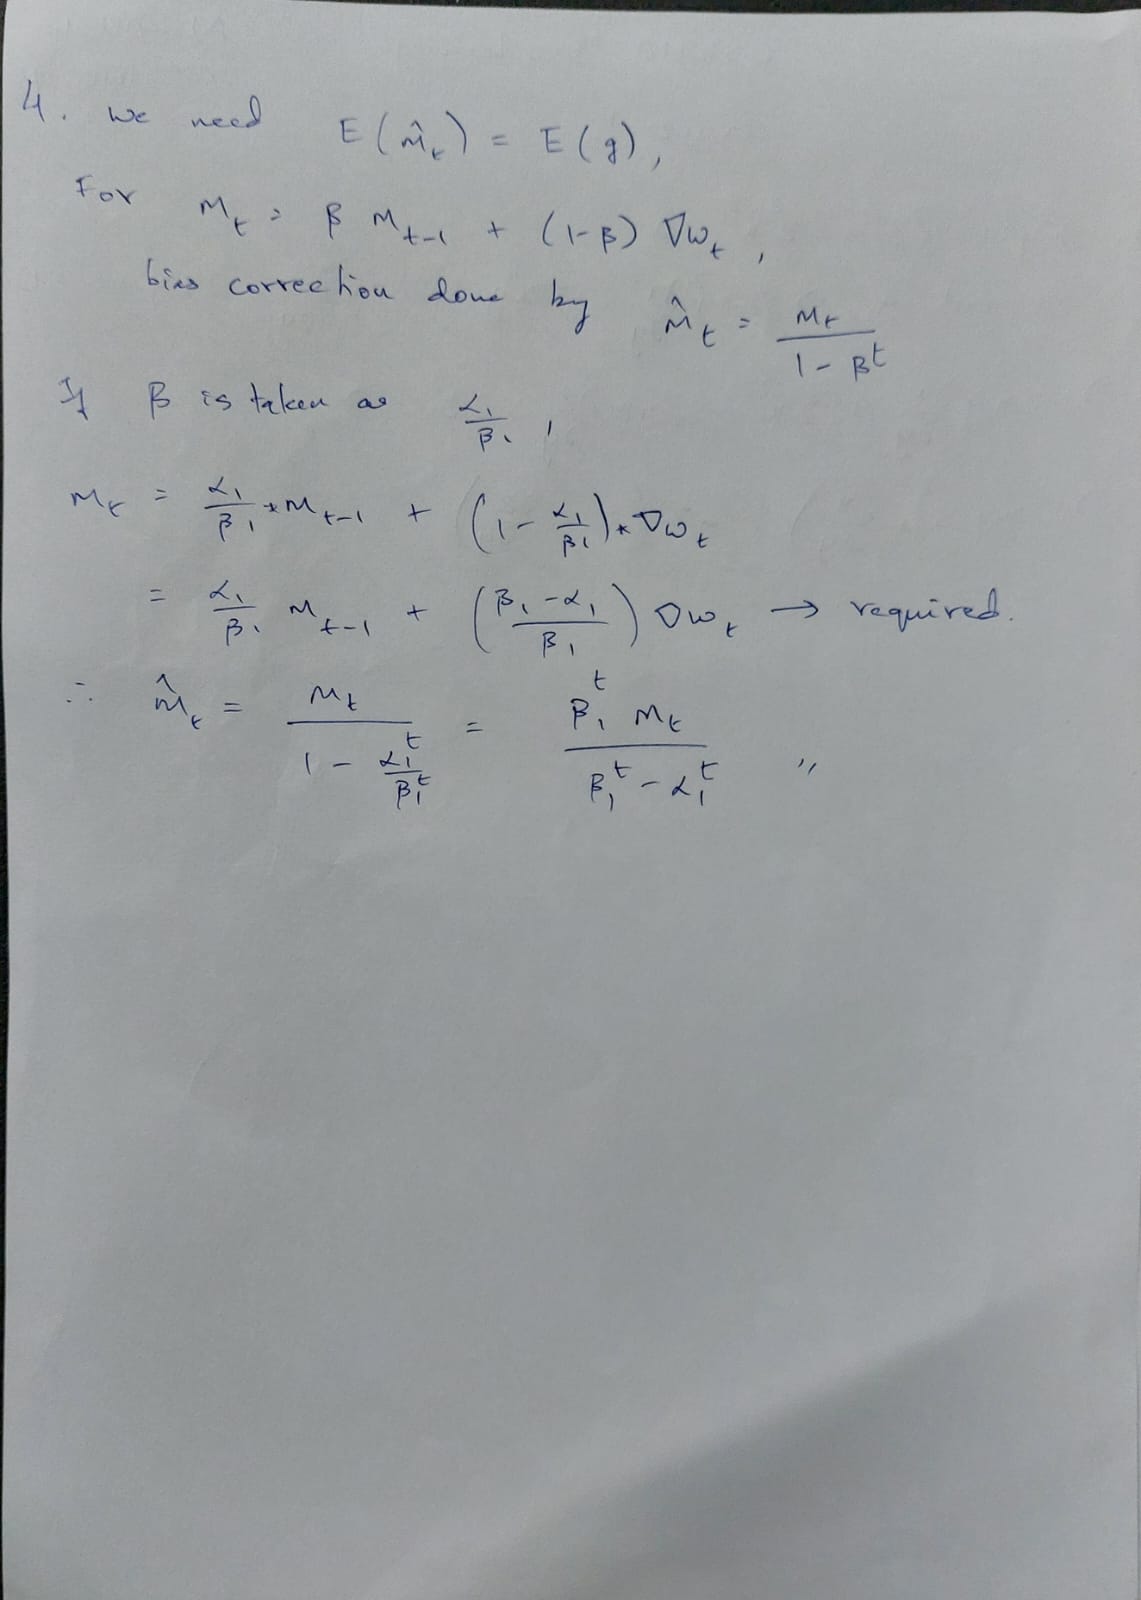 4. We need E(m̂_t) = E(g),
For M_t = β M_{t-1} + (1-β) ∇w_t,
bias correction done by m̂_t = M_t / (1 - β^t)
If β is taken as α_1/β_1,
M_t = α_1/β_1 * M_{t-1} + (1 - α_1/β_1) * ∇w_t
= α_1/β_1 M_{t-1} + ((β_1 - α_1)/β_1) ∇w_t → required.
∴ m̂_t = M_t / (1 - α_1^t/β_1^t) = β_1^t M_t / (β_1^t - α_1^t) "